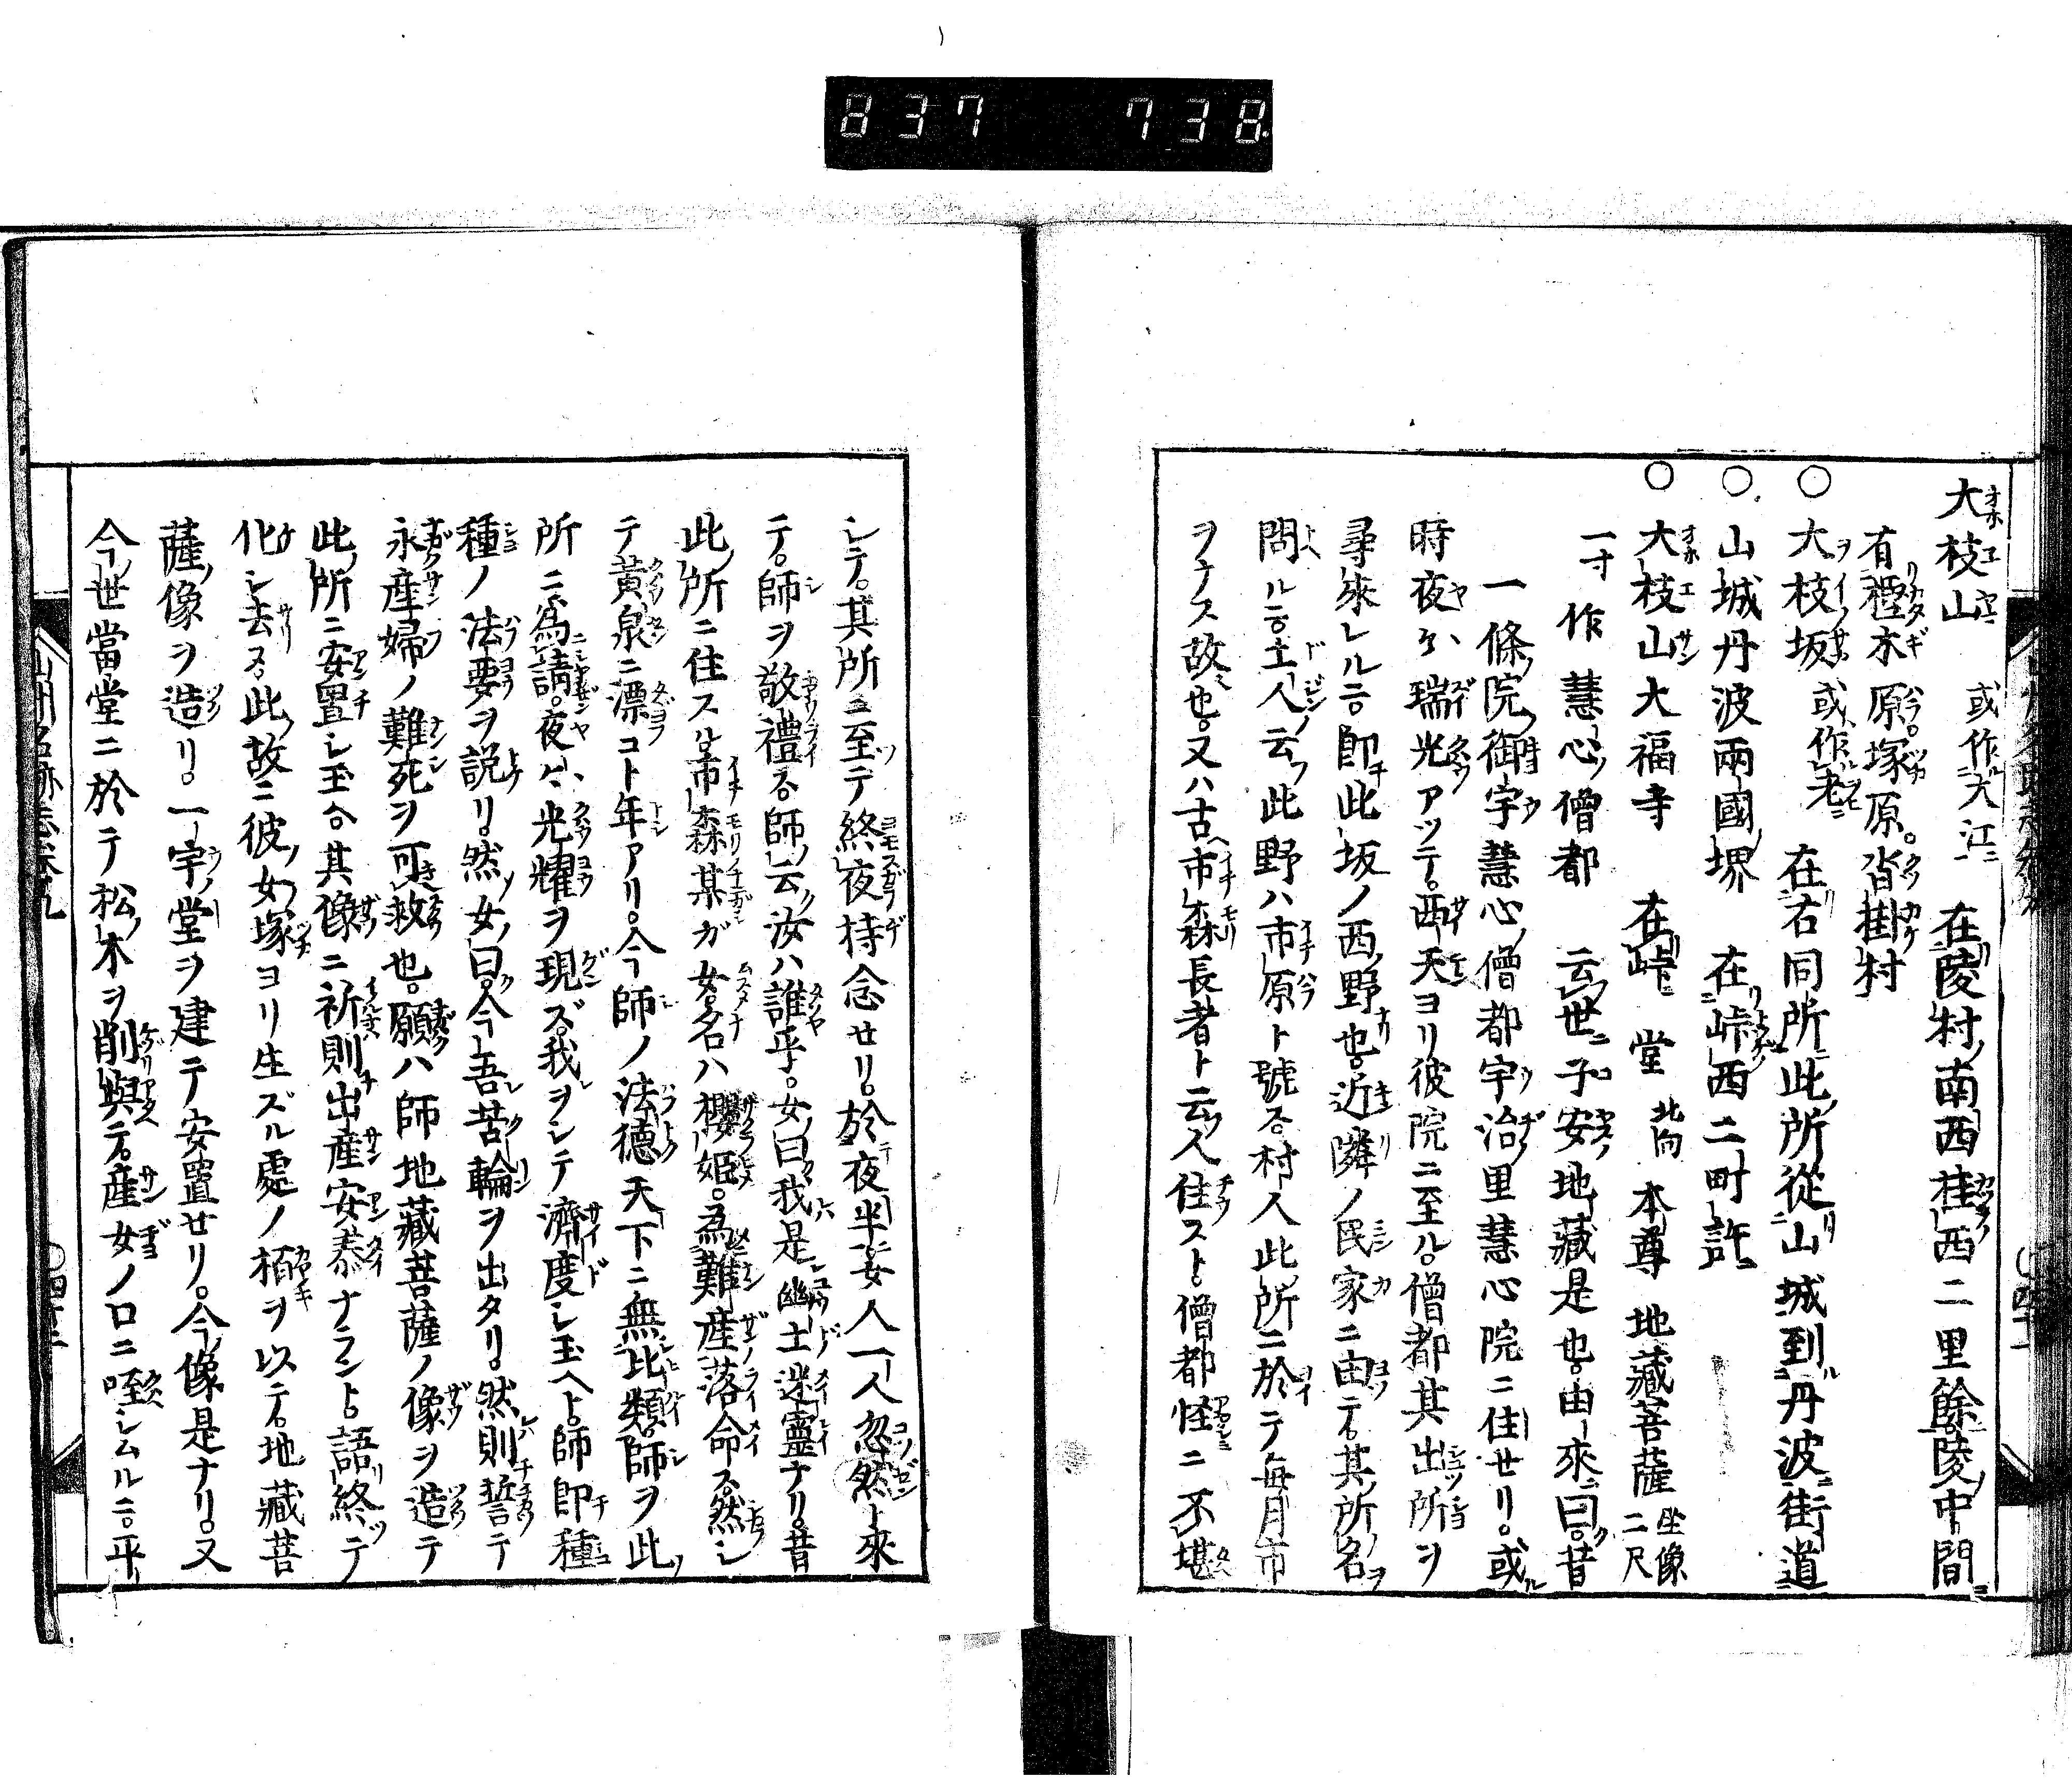 837 738
大枝山 或作大江 在陵村南西桂西二里餘陵中間
有樫木原。塚原。沓掛村
○大枝坂 或作老 在右同所此所從山城到丹波街道
○山城丹波兩國堺 在峠西二町許
○大枝山大福寺 在峠 堂 北向 本尊 地藏菩薩 坐像二尺
一寸 作 慧心僧都 云世子安地藏是也。由來曰。昔
一條院御宇慧心僧都宇治里慧心院ニ住セリ。或
時夜々瑞光アツテ。西天ヨリ彼院ニ至ル。僧都其出所ヲ
尋來レルニ。即此坂ノ西野也。近隣ノ民家ニ由テ。其所名ヲ
問ルニ。土人云此野ハ市原ト號ス。村人此所ニ於テ毎月市
ヲナス故也。又ハ古市森長者ト云人住スト。僧都怪ニ不堪
シテ。其所ニ至テ終夜持念セリ。於夜半女人一人忽然ト來
テ。師ヲ敬禮ス。師云汝ハ誰乎。女曰我是幽土迷靈ナリ。昔
此所ニ住スル市森某ガ女。名ハ櫻姫。爲難産落命ス。然シ
テ黄泉ニ漂コト年アリ。今師ノ法德天下ニ無比類。師ヲ此
所ニ爲請。夜々光耀ヲ現ズ。我ヲシテ濟度シ玉ヘト。師即種
種ノ法要ヲ説リ。然女曰。今吾苦輪ヲ出タリ。然則誓テ
永産婦ノ難死ヲ可救也。願ハ師地藏菩薩ノ像ヲ造テ
此所ニ安置シ玉ヘ。其像ニ祈則出産安泰ナラント。語終テ
化シ去ル。此故ニ彼女塚ヨリ生ズル處ノ栢ヲ以テ。地藏菩
薩像ヲ造リ。一宇堂ヲ建テ安置セリ。今像是ナリ。又
今世當堂ニ於テ松木ヲ削與テ。産女ノ口ニ咥シムルニ。平